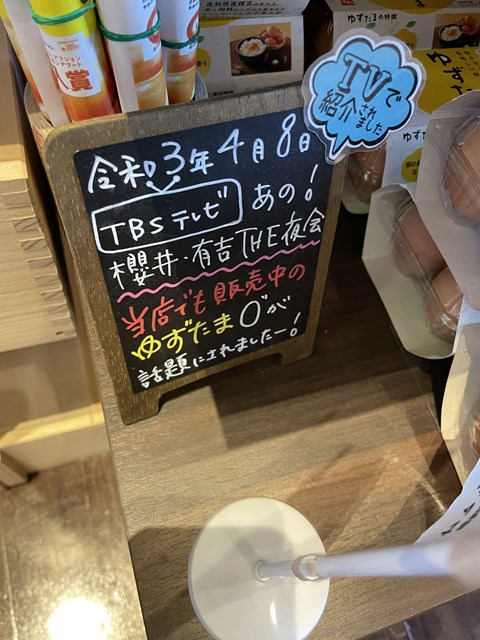 TVで
紹介されました
令和3年4月8日
TBSテレビ あの!
櫻井・有吉THE夜会
当店でも販売中の
ゆずたま
が
話題にされましたー!
入賞
ゆずたまの特徴